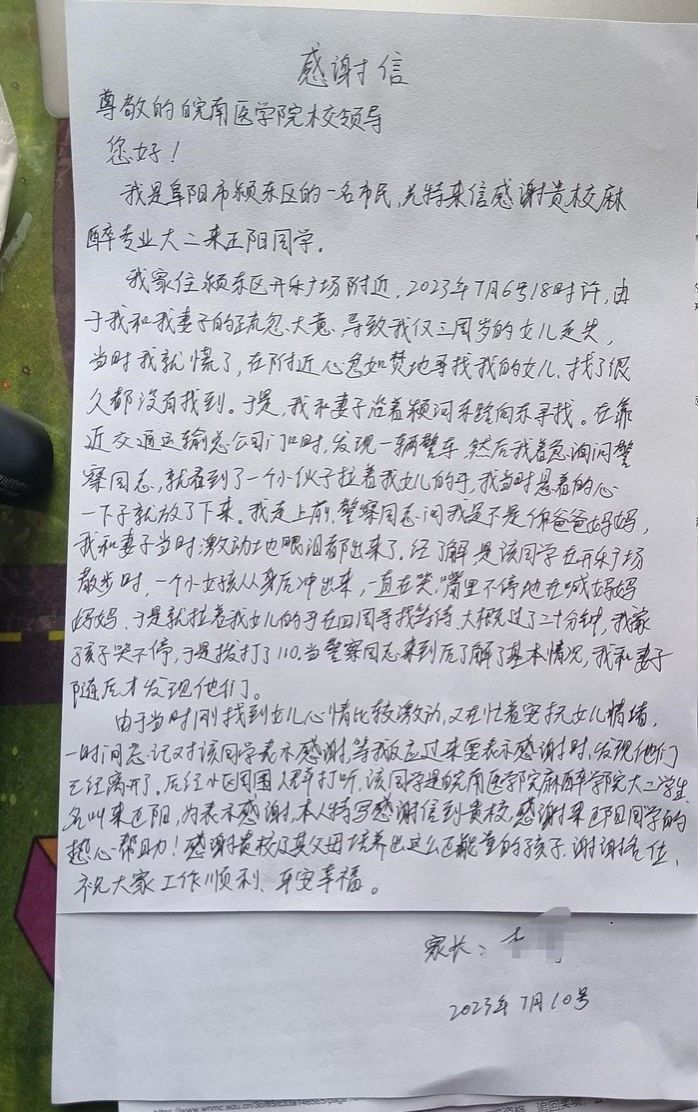 感谢信
尊敬的皖南医学院校领导
您好！
我是阜阳市颍东区的一名市民,兄特来信感谢贵校麻
醉专业大二来正阳同学。
我家住颍东区开乐广场附近，2023年7月6号18时许,由
于我和我妻子的疏忽、大意，导致我仅三周岁的女儿走失,
当时我就慌了，在附近心急如焚地寻找我的女儿,找了很
久都没有找到。于是,我和妻子沿着颍河东路向东寻找。在靠
近交通运输总公司门口时,发现一辆警车,然后我着急询问警
察同志,就看到了一个小伙子拉着我女儿的手,我当时悬着的心
一下子就放了下来。我走上前,警察同志问我是不是你爸爸妈妈,
我和妻子当时激动地眼泪都出来了。经了解是该同学在开乐广场
散步时,一个小女孩从身后冲出来,一直在哭,嘴里不停地在喊妈妈
妈妈,于是就拉着我女儿的手在四周寻找等待,大概过了二十分钟,我家
孩子哭不停,于是拨打了110.当警察同志来到后了解了基本情况,我和妻子
随后才发现他们。
由于当时刚找到女儿心情比较激动,又在忙着安抚女儿情绪,
一时间忘记对该同学表示感谢,等我反应过来要表示感谢时,发现他们
已经离开了。后经小区周围人群打听,该同学是皖南医学院麻醉学院大二学生
名叫来正阳,为表示感谢,本人特写感谢信到贵校,感谢来正阳同学的
热心帮助！感谢贵校及其父母培养出这么正能量的孩子.谢谢各位,
祝大家工作顺利、平安幸福。
家长：
2023年7月10号
https://www.wnmc.edu.cn/